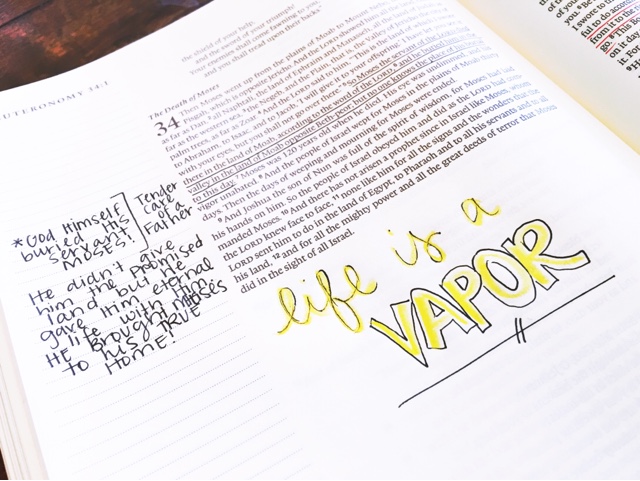 the shield of your help,
and the sword of your triumph!
Your enemies shall come fawning to you,
and you shall tread upon their backs."
EUTERONOMY 34:1
The Death of Moses
34 Then Moses went up from the plains of Moab to Mount
Pisgah, which is opposite Jericho. And the LORD showed him
as far as Dan, 2 all Naphtali, the land of Ephraim and Manasseh, all
as far as the western sea, 3 the Negeb, and the Plain, that is, the Valley
palm trees, as far as Zoar. 4 And the LORD said to him, "This is the land
to Abraham, to Isaac, and to Jacob, 'I will give it to your offspring.' I have let you
with your eyes, but you shall not go over there." 5 So Moses the servant of the LORD
there in the land of Moab, according to the word of the LORD, 6 and he buried him
valley in the land of Moab opposite Beth-peor; but no one knows the place of his
to this day. 7 Moses was 120 years old when he died. His eye was undimmed, and his
vigor unabated. 8 And the people of Israel wept for Moses in the plains of Moab thirty
days. Then the days of weeping and mourning for Moses were ended.
9 And Joshua the son of Nun was full of the spirit of wisdom, for Moses had laid
his hands on him. So the people of Israel obeyed him and did as the LORD had com-
manded Moses. 10 And there has not arisen a prophet since in Israel like Moses, whom
the LORD knew face to face, 11 none like him for all the signs and the wonders that the
LORD sent him to do in the land of Egypt, to Pharaoh and to all his servants and to all
his land, 12 and for all the mighty power and all the great deeds of terror that Moses
did in the sight of all Israel.
*GOD Himself
buried His
servant
MOSES!
Tender
care
of a
Father
He didn't give
him the Promised
land but He
gave Him eternal
life with Him.
HE Brought Moses
to his TRUE
HOME!
life is a
VAPOR